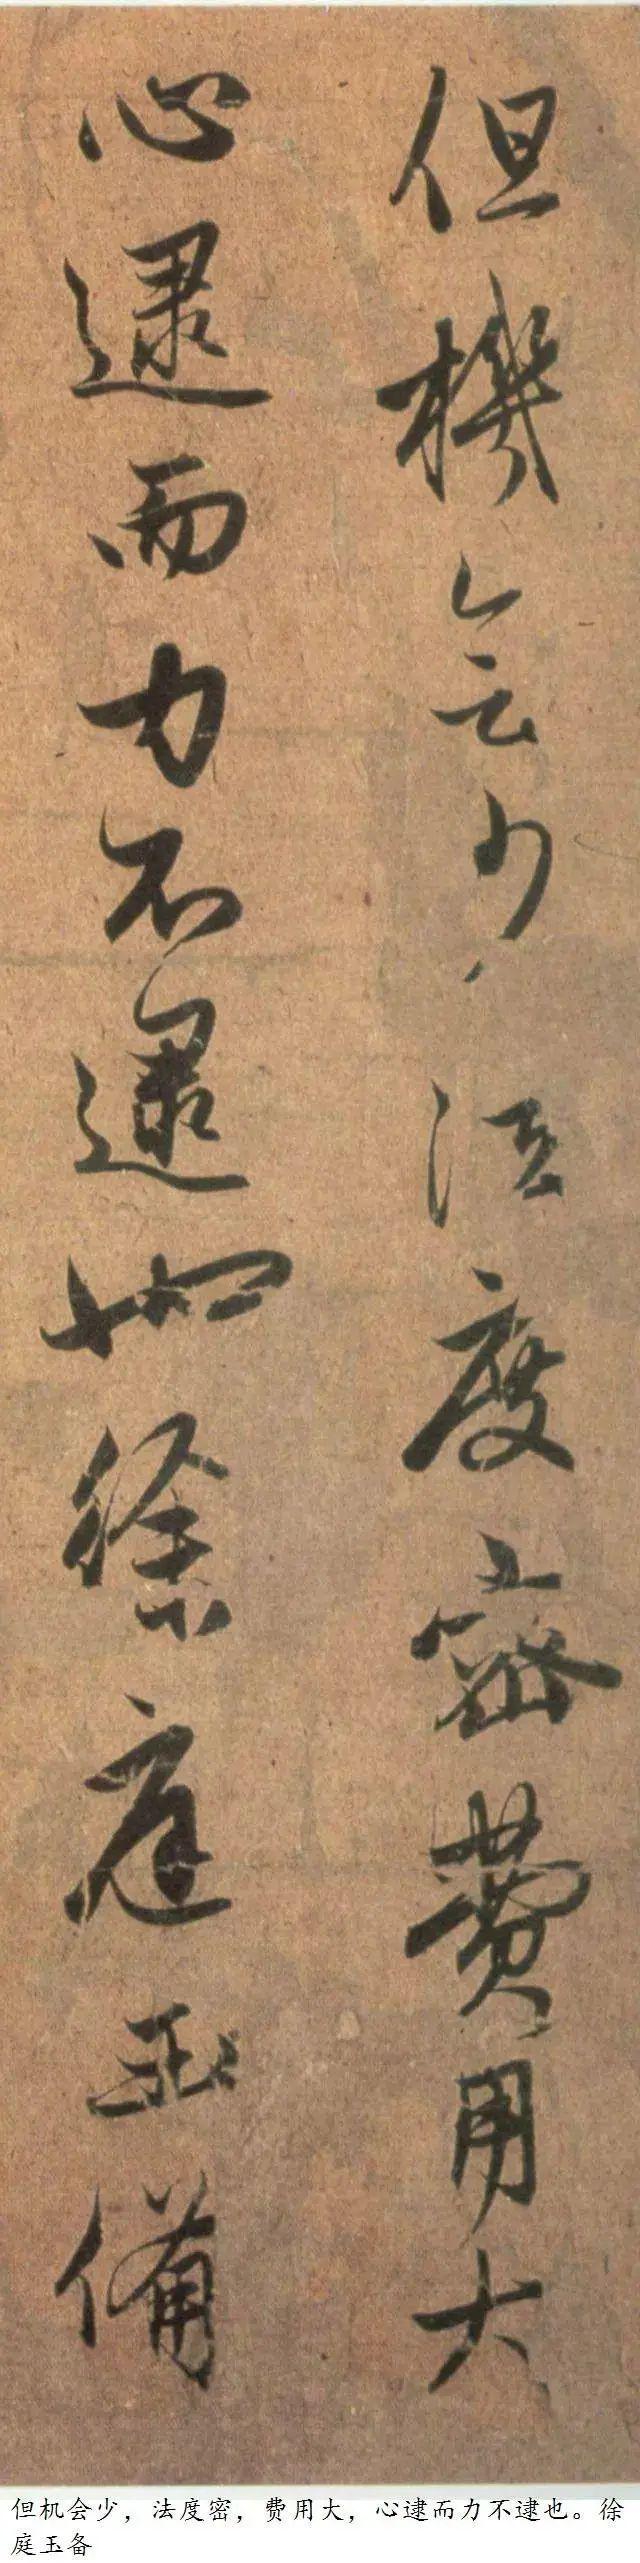 但機會少法度密費用大
心逮而力不逮也徐庭玉備
但机会少，法度密，费用大，心逮而力不逮也。徐
庭玉备